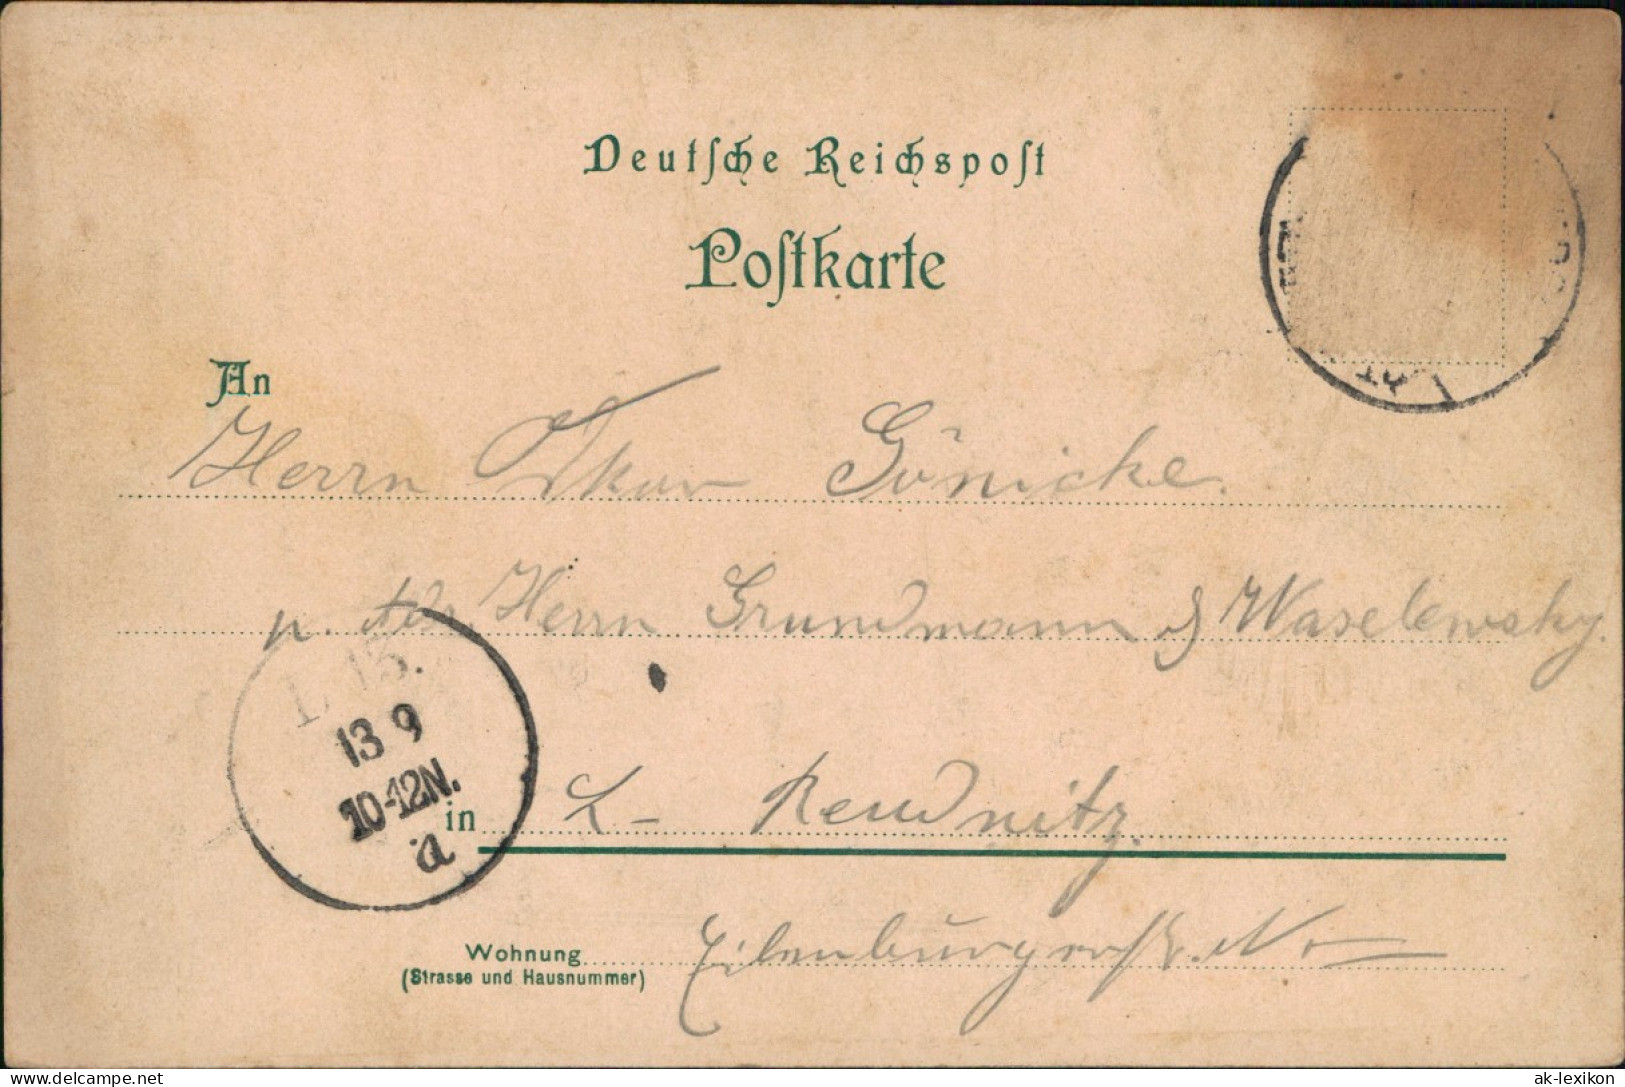 Deutsche Reichspost
Postkarte
An
Herrn Oskar Gönicke.
p. Adr. Herrn Grundmann & Waselewsky.
L. 13.
13 9
10-12N.
a
in L- Reudnitz.
Wohnung Eilenburgerstr. No
(Strasse und Hausnummer)
www.delcampe.net
ak-lexikon